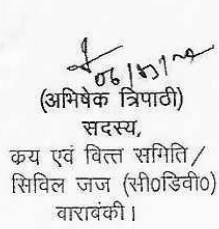 (अभिषेक त्रिपाठी)
सदस्य,
कय एवं वित्त समिति /
सिविल जज (सी०डिवी०)
वाराबंकी।